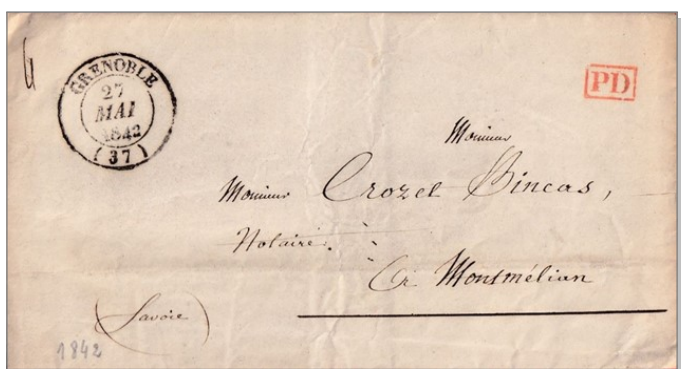 GRENOBLE
27
MAI
1842
(37)
PD
Monsieur
Monsieur Crozet Bincas,
Notaire.
à Montmélian
(Savoie)
1842